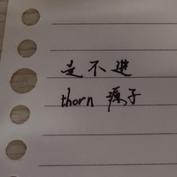 走不进
thorn 疯子